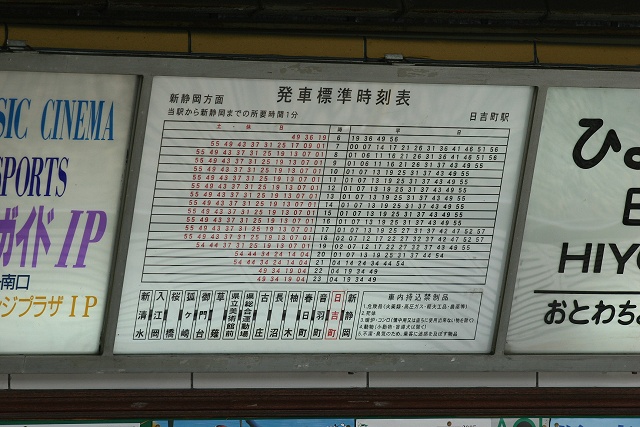 SIC CINEMA
SPORTS
ガイド IP
南口
ジプラザ IP
発車標準時刻表
新静岡方面
当駅から新静岡までの所要時間1分
日吉町駅
土・休日 時 平日
49 36 19 6 19 36 49 56
55 49 43 37 31 25 17 09 01 7 00 07 14 17 21 26 31 36 41 46 51 56
55 49 43 37 31 25 19 13 07 01 8 01 06 11 16 21 26 31 36 41 46 51 56
55 49 43 37 31 25 19 13 07 01 9
55 49 43 37 31 25 19 13 07 01 10 01 07 13 19 25 31 37 43 49 55
55 49 43 37 31 25 19 13 07 01 11 01 07 13 19 25 31 37 43 49 55
55 49 43 37 31 25 19 13 07 01 12 01 07 13 19 25 31 37 43 49 55
55 49 43 37 31 25 19 13 07 01 13 01 07 13 19 25 31 37 43 49 55
55 49 43 37 31 25 19 13 07 01 14 01 07 13 19 25 31 37 43 49 55
55 49 43 37 31 25 19 13 07 01 15 01 07 13 19 25 31 37 43 49 55
55 49 43 37 31 25 19 13 07 01 16 01 07 13 19 25 31 37 43 49 55
55 49 43 37 31 25 19 13 07 01 17 01 07 13 19 25 31 37 42 47 52 57
55 49 43 37 31 25 19 13 07 01 18 02 07 12 17 22 27 32 37 42 47 52 57
54 44 37 31 25 19 13 07 01 19 02 07 13 19 25 31 37 43 49 55
54 44 34 24 14 04 20 01 07 13 19 25 31 37 44 54
54 44 34 24 14 04 21 04 14 24 34 44 54
49 34 19 04 22 04 19 34 49
49 34 19 04 23 04 19 34 49
新清水
入江岡
桜橋
狐ヶ崎
御門台
草薙
県立美術館前
県総合運動場
古庄
長沼
柚木
春日町
音羽町
日吉町
新静岡
車内持込禁制品
ひ
HIYO
おとわち